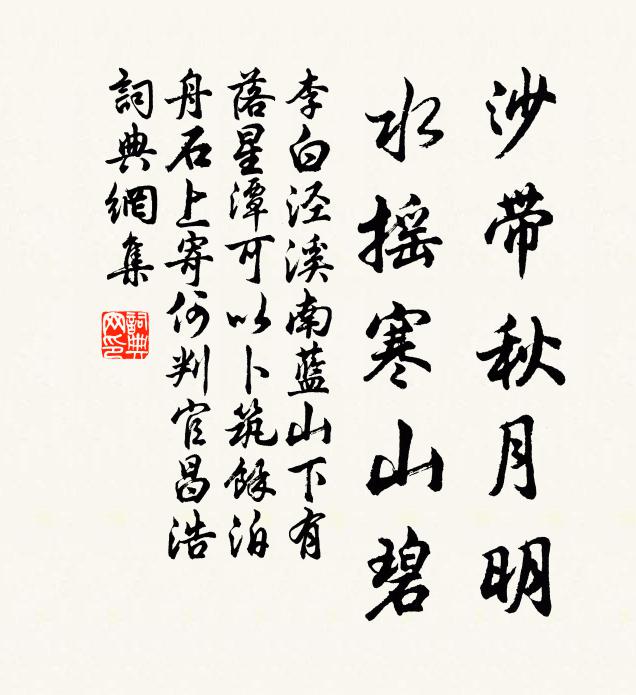 沙带秋月明
水摇寒山碧
李白泾溪南蓝山下有
落星潭可以卜筑馀泊
舟石上寄何判官昌浩
詞典網集
詞典網印